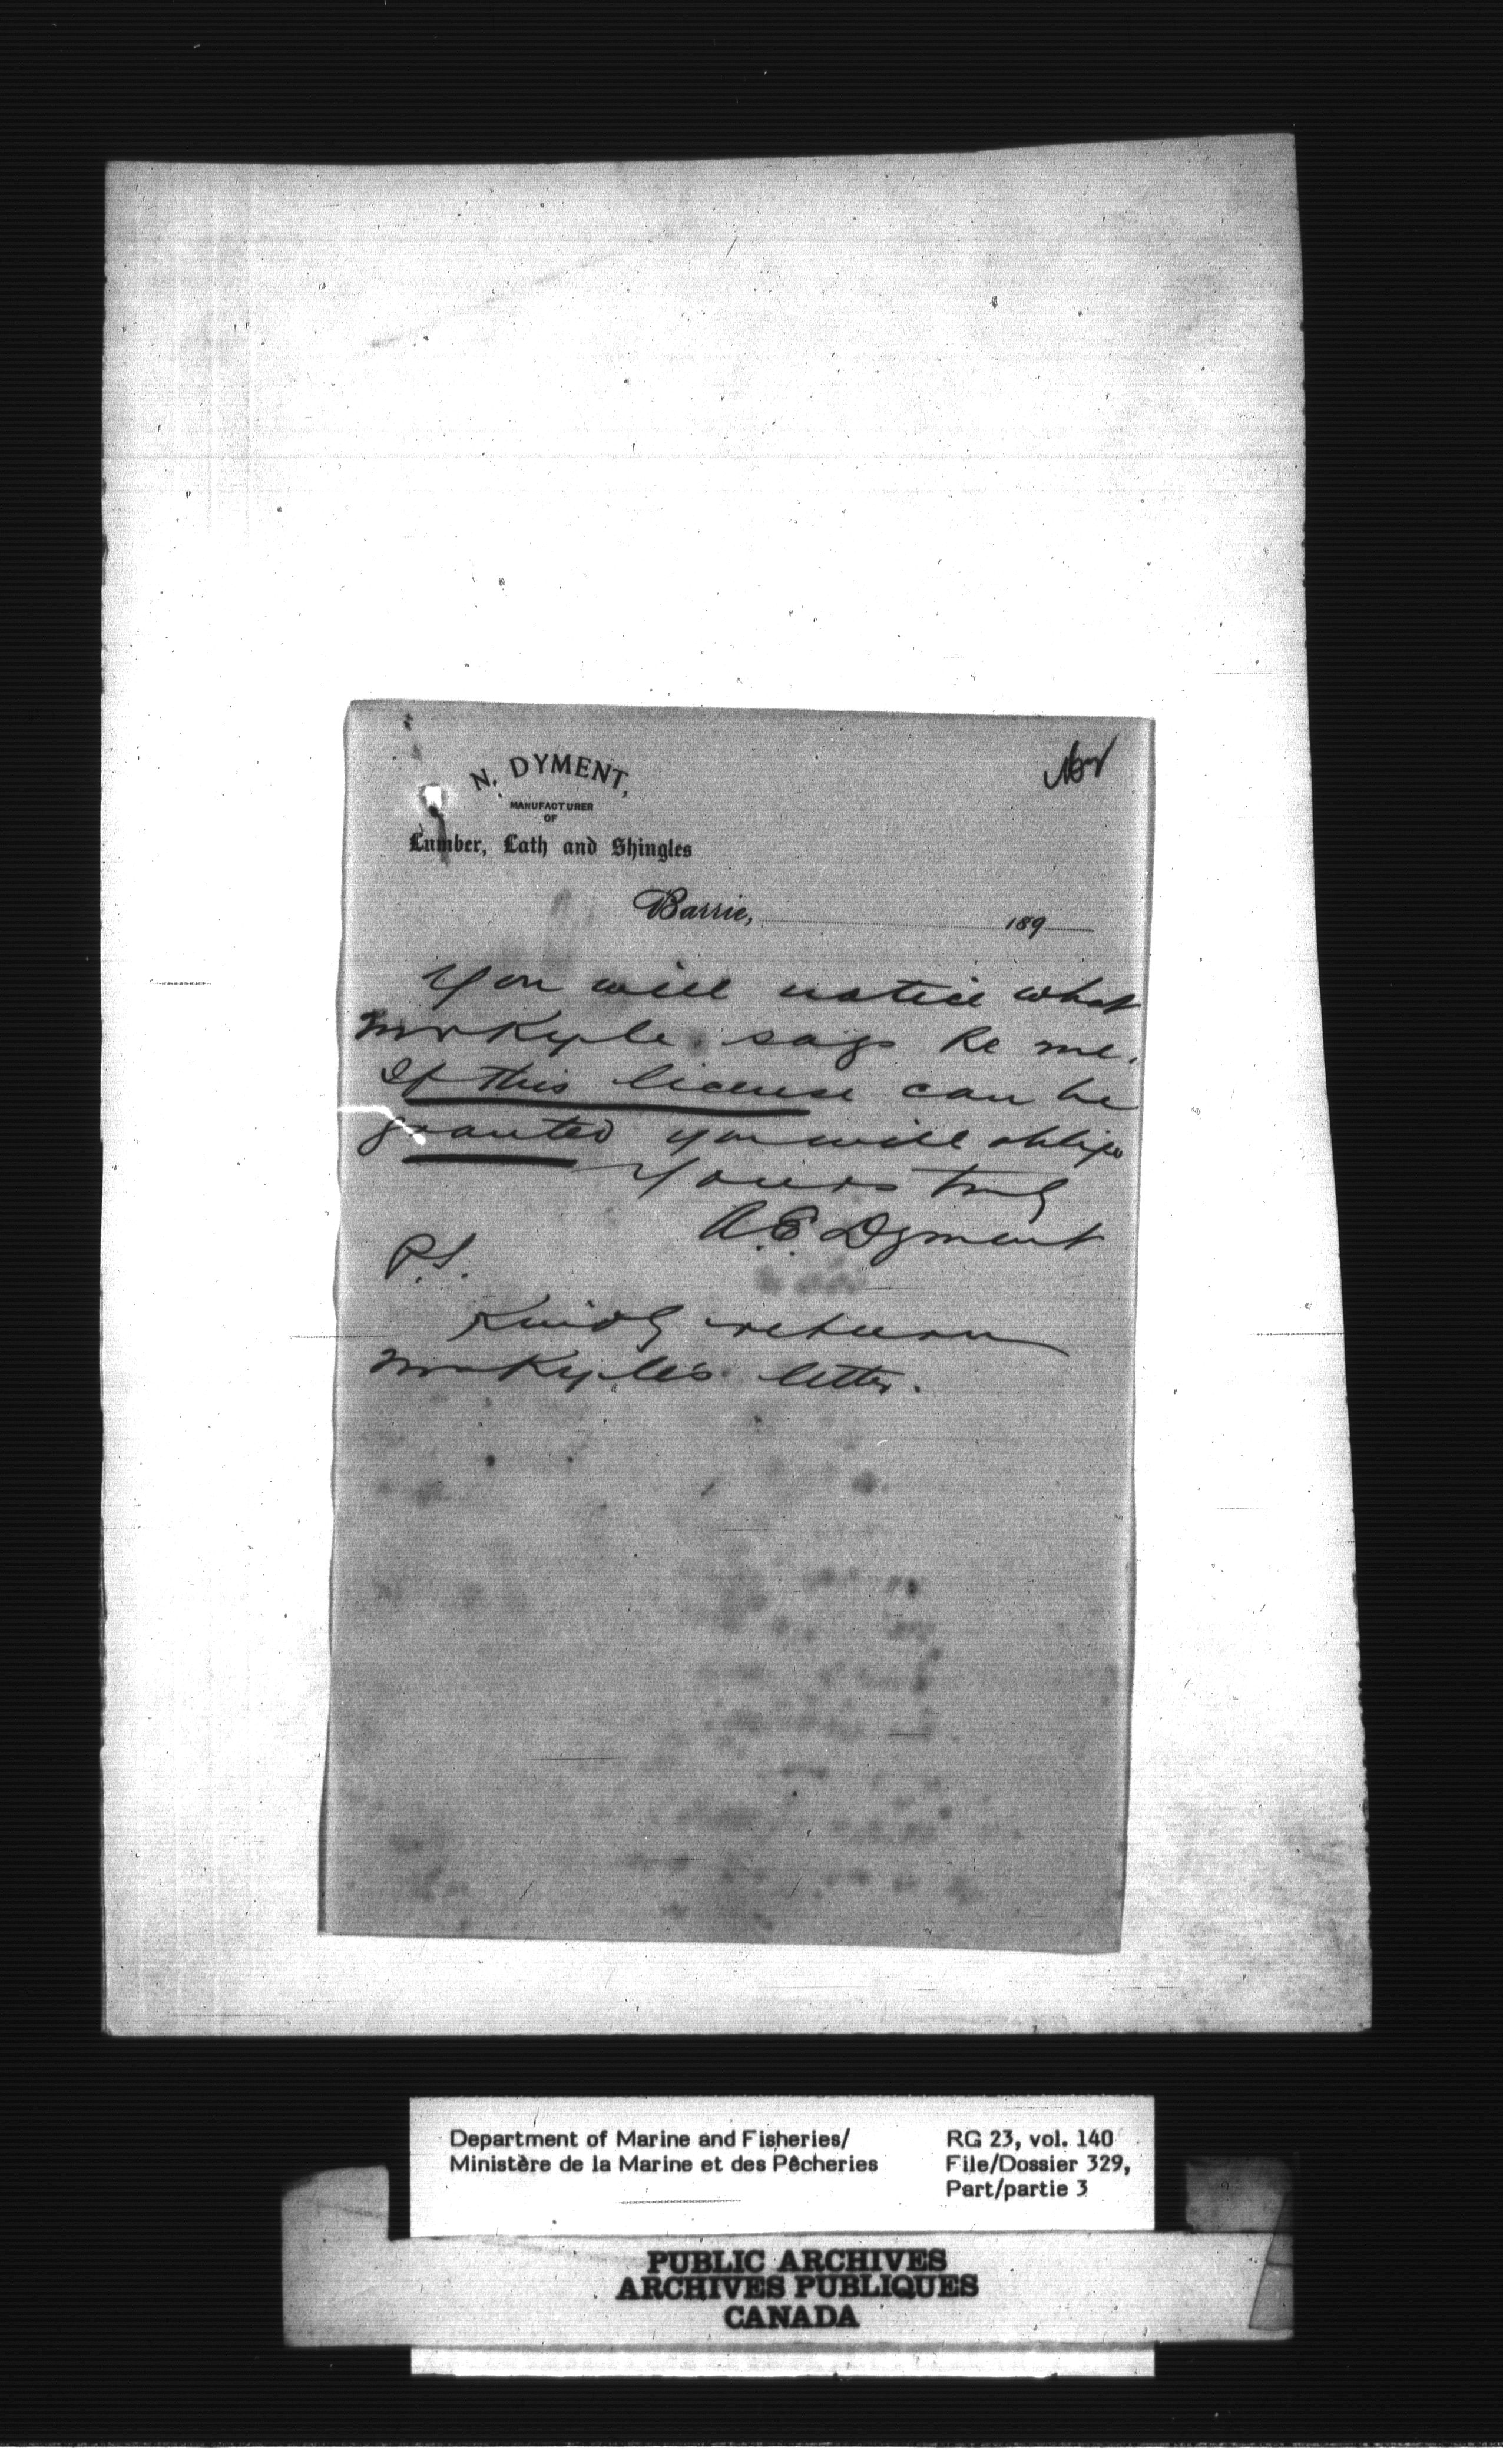 N. DYMENT,
MANUFACTURER
OF
Lumber, Lath and Shingles
Barrie, 189
You will notice what
Mr Kyle says Re me.
If this license can be
granted you will oblige
Yours truly
A.E. Dyment
P.S.
Kindly return
Mr Kyle's letter.
Department of Marine and Fisheries/
Ministère de la Marine et des Pêcheries
RG 23, vol. 140
File/Dossier 329,
Part/partie 3
PUBLIC ARCHIVES
ARCHIVES PUBLIQUES
CANADA